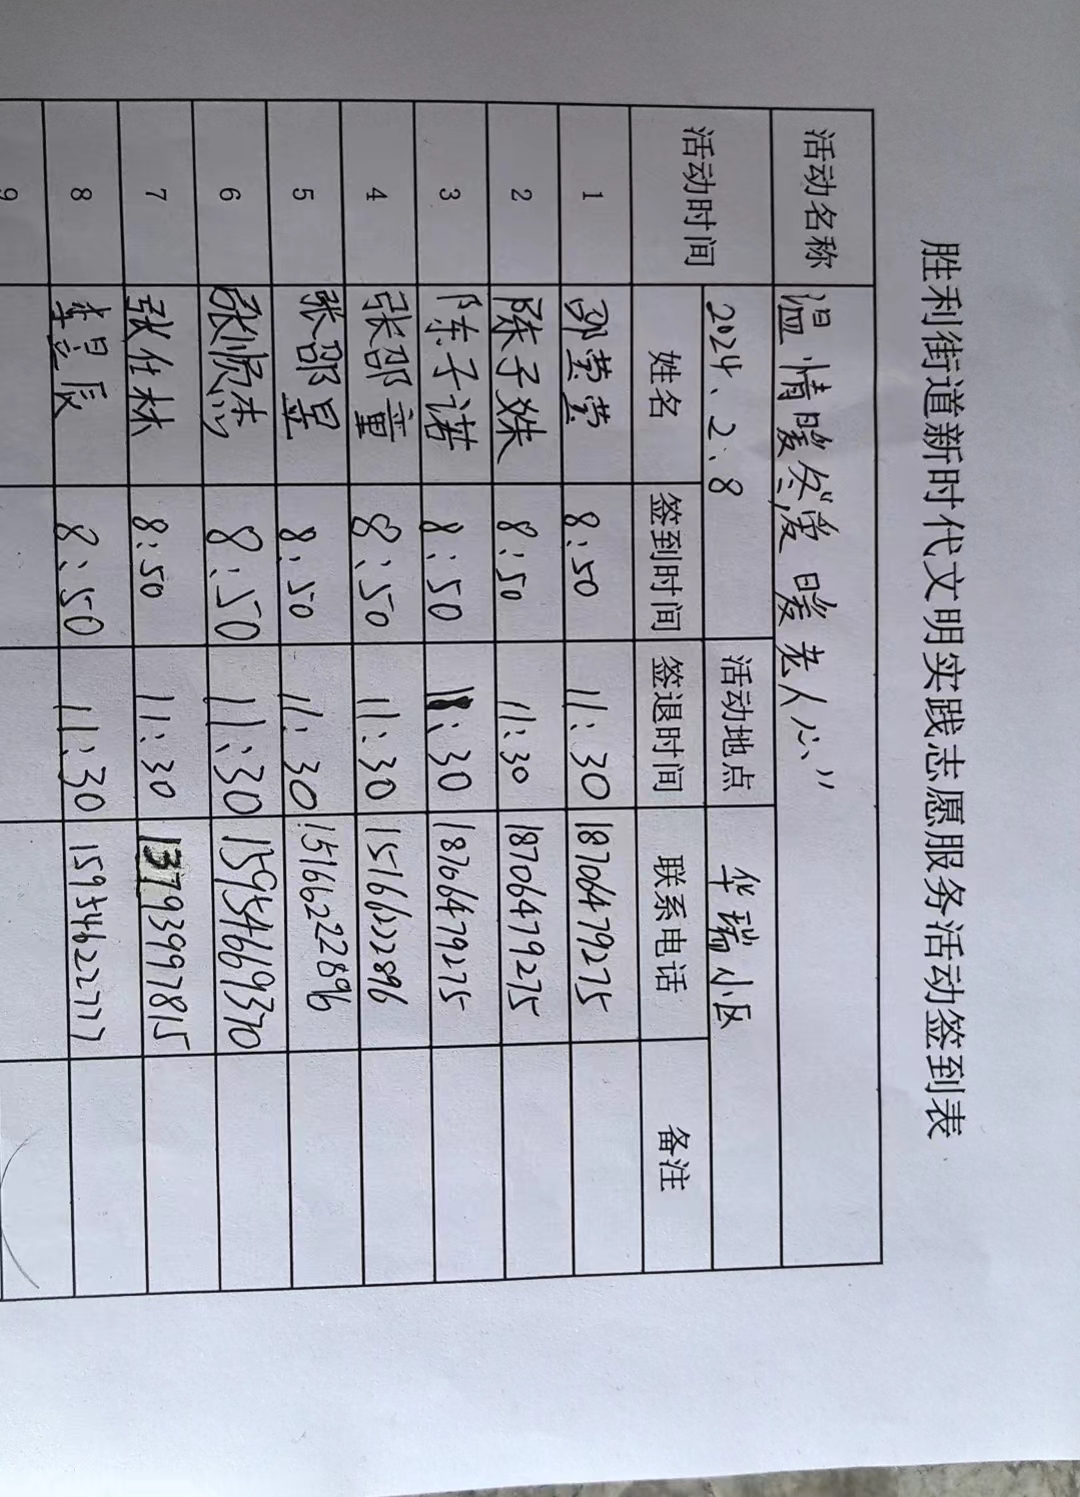 胜利街道新时代文明实践志愿服务活动签到表
活动名称 温情暖冬爱暖老人心"
活动时间 2024、2、8 活动地点 华瑞小区
姓名 签到时间 签退时间 联系电话 备注
1 邵莹莹 8:50 11:30 18706479275
2 陈子姝 8:50 11:30 18706479275
3 陈子诺 8:50 11:30 18706479275
4 张邵童 8:50 11:30 15166222896
5 张邵昱 8:50 11:30 15166222896
6 张顺杰 8:50 11:30 15954669370
7 张仕林 8:50 11:30 13793997815
8 李昊辰 8:50 11:30 15954622777
9